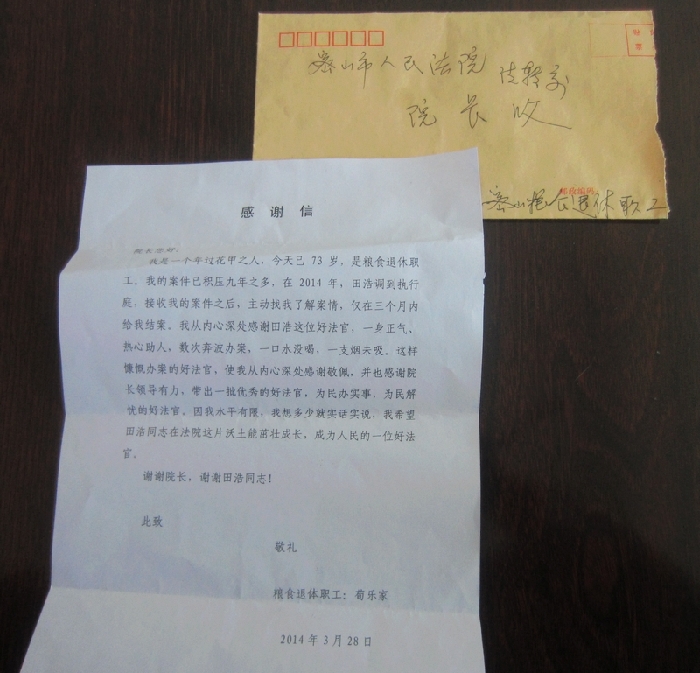 密山市人民法院 请转交
院长收
邮政编码
密山粮食退休职工
感谢信
院长您好:
我是一个年过花甲之人,今天已73岁,是粮食退休职
工,我的案件已积压九年之多,在2014年,王浩调到执行
庭,接收我的案件之后,主动找我了解案情,仅在三个月内
给我结案。我从内心深处感谢田浩这位好法官,一身正气,
热心助人,数次奔波办案,一口水没喝,一支烟云吸,这样
慷慨办案的好法官,使我从内心深处感谢敬佩,并也感谢院
长领导有力,带出一批优秀的好法官,为民办实事,为民解
忧的好法官。因我水平有限,我想多少就实话实说,我希望
田浩同志在法院这片沃土能茁壮成长,成为人民的一位好法
官。
谢谢院长,谢谢田浩同志!
此致
敬礼
粮食退体职工:荀乐家
2014年3月28日